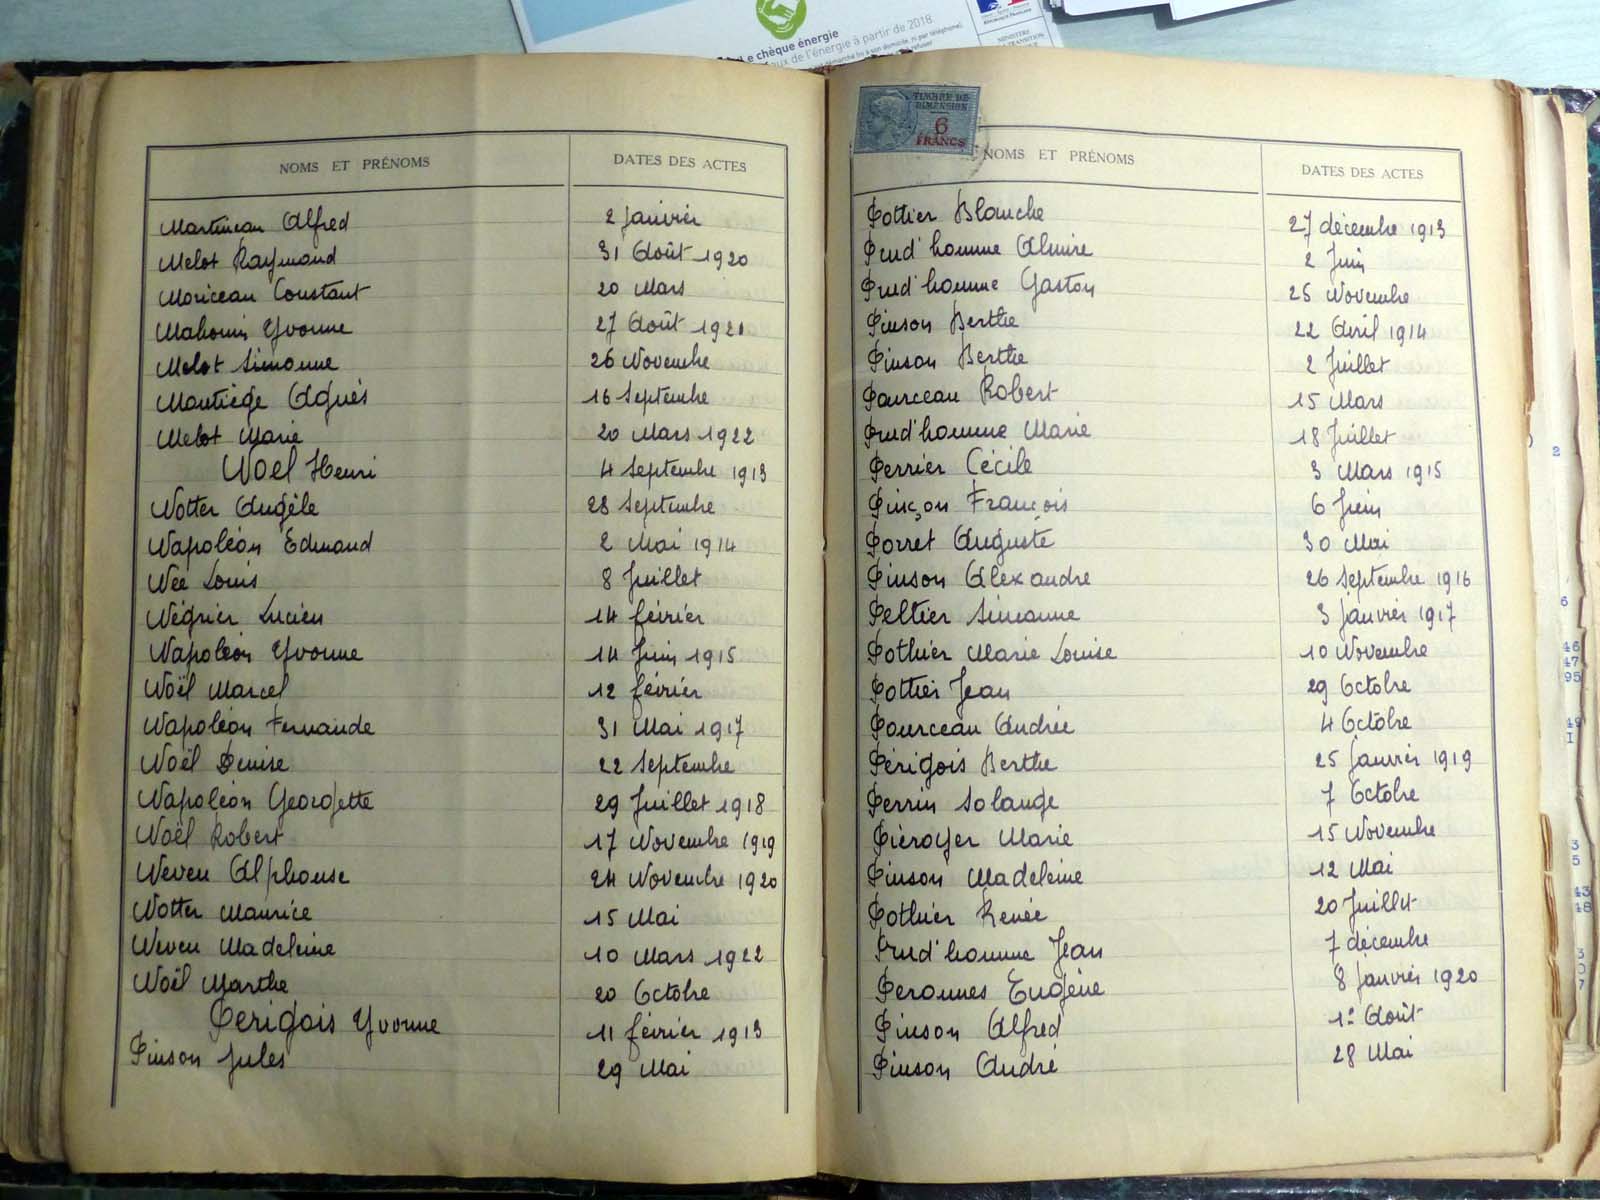 Le chèque énergie
aux de l'énergie à partir de 2018
MINISTÈRE
NOMS ET PRÉNOMS DATES DES ACTES
Martineau Alfred 2 Janvier
Melot Raymond 31 Août 1920
Moriceau Constant 20 Mars
Mahouin Yvonne 27 Août 1921
Melot Simonne 26 Novembre
Montiège Agnès 16 Septembre
Melot Marie 20 Mars 1922
Noël Henri 4 Septembre 1913
Notter Angèle 28 Septembre
Napoléon Edmond 2 Mai 1914
Née Louis 8 Juillet
Négrier Lucien 14 février
Napoléon Yvonne 14 Juin 1915
Noël Marcel 12 février
Napoléon Fernande 31 Mai 1917
Noël Denise 22 Septembre
Napoléon Georgette 29 Juillet 1918
Noël Robert 17 Novembre 1919
Neveu Alphonse 24 Novembre 1920
Notter Maurice 15 Mai
Neveu Madeleine 10 Mars 1922
Noël Marthe 20 Octobre
Perigois Yvonne 11 février 1913
Pinson Jules 29 Mai
TIMBRE DE
DIMENSION
6
FRANCS
NOMS ET PRÉNOMS DATES DES ACTES
Pottier Blanche 27 décembre 1913
Prud'homme Almire 2 Juin
Prud'homme Gaston 25 Novembre
Pinson Berthe 22 Avril 1914
Pinson Berthe 2 Juillet
Pourceau Robert 15 Mars
Prud'homme Marie 18 Juillet
Perrier Cécile 3 Mars 1915
Pinçon François 6 Juin
Porret Auguste 30 Mai
Pinson Alexandre 26 Septembre 1916
Peltier Simonne 3 Janvier 1917
Pothier Marie Louise 10 Novembre
Pottier Jean 29 Octobre
Pourceau Andrée 4 Octobre
Périgois Berthe 25 Janvier 1919
Perrin Solange 7 Octobre
Piéroyer Marie 15 Novembre
Pinson Madeleine 12 Mai
Pothier Renée 20 Juillet
Prud'homme Jean 7 décembre
Peronnes Eugène 8 Janvier 1920
Pinson Alfred 1º Août
Pinson André 28 Mai